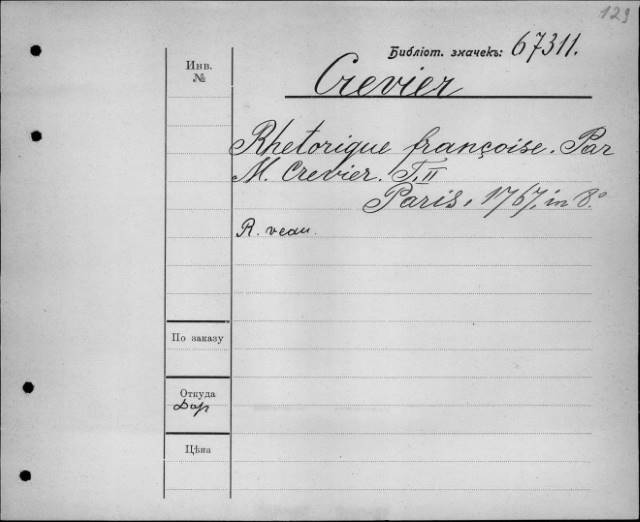 129
Библіот. значекъ: 67311.
Инв. №
Crevier
Rhetorique françoise. Par
M. Crevier. T. II
Paris, 1767, in 8.°
R. veau.
По заказу
Откуда
Дар
Цѣна